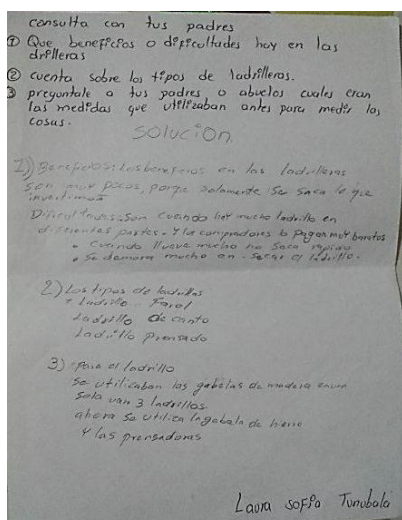 consulta con tus padres
① Que beneficios o dificultades hay en las
drilleras
② cuenta sobre los tipos de ladrilleras.
③ preguntale a tus padres o abuelos cuales eran
las medidas que utilizaban antes para medir las
cosas.
solución
1) Beneficios: Los beneficios en las ladrilleras
son muy pocos, porqe solamente se saca lo que
invertimos
Dificultades: Son cuando hay mucho ladrillo en
diferentes partes. Y los compradores lo pagan muy baratos
• Cuando llueve mucho no seca rapido
• Se demora mucho en secar el ladrillo.
2) Los tipos de ladrillos
+ Ladrillo Farol
Ladrillo de canto
Ladrillo prensado
3) para el ladrillo
se utilizaban las gabelas de madera
sola van 3 ladrillos
ahora se utiliza la gabela de hierro
Y las prensadoras
Laura Sofia Tunubala